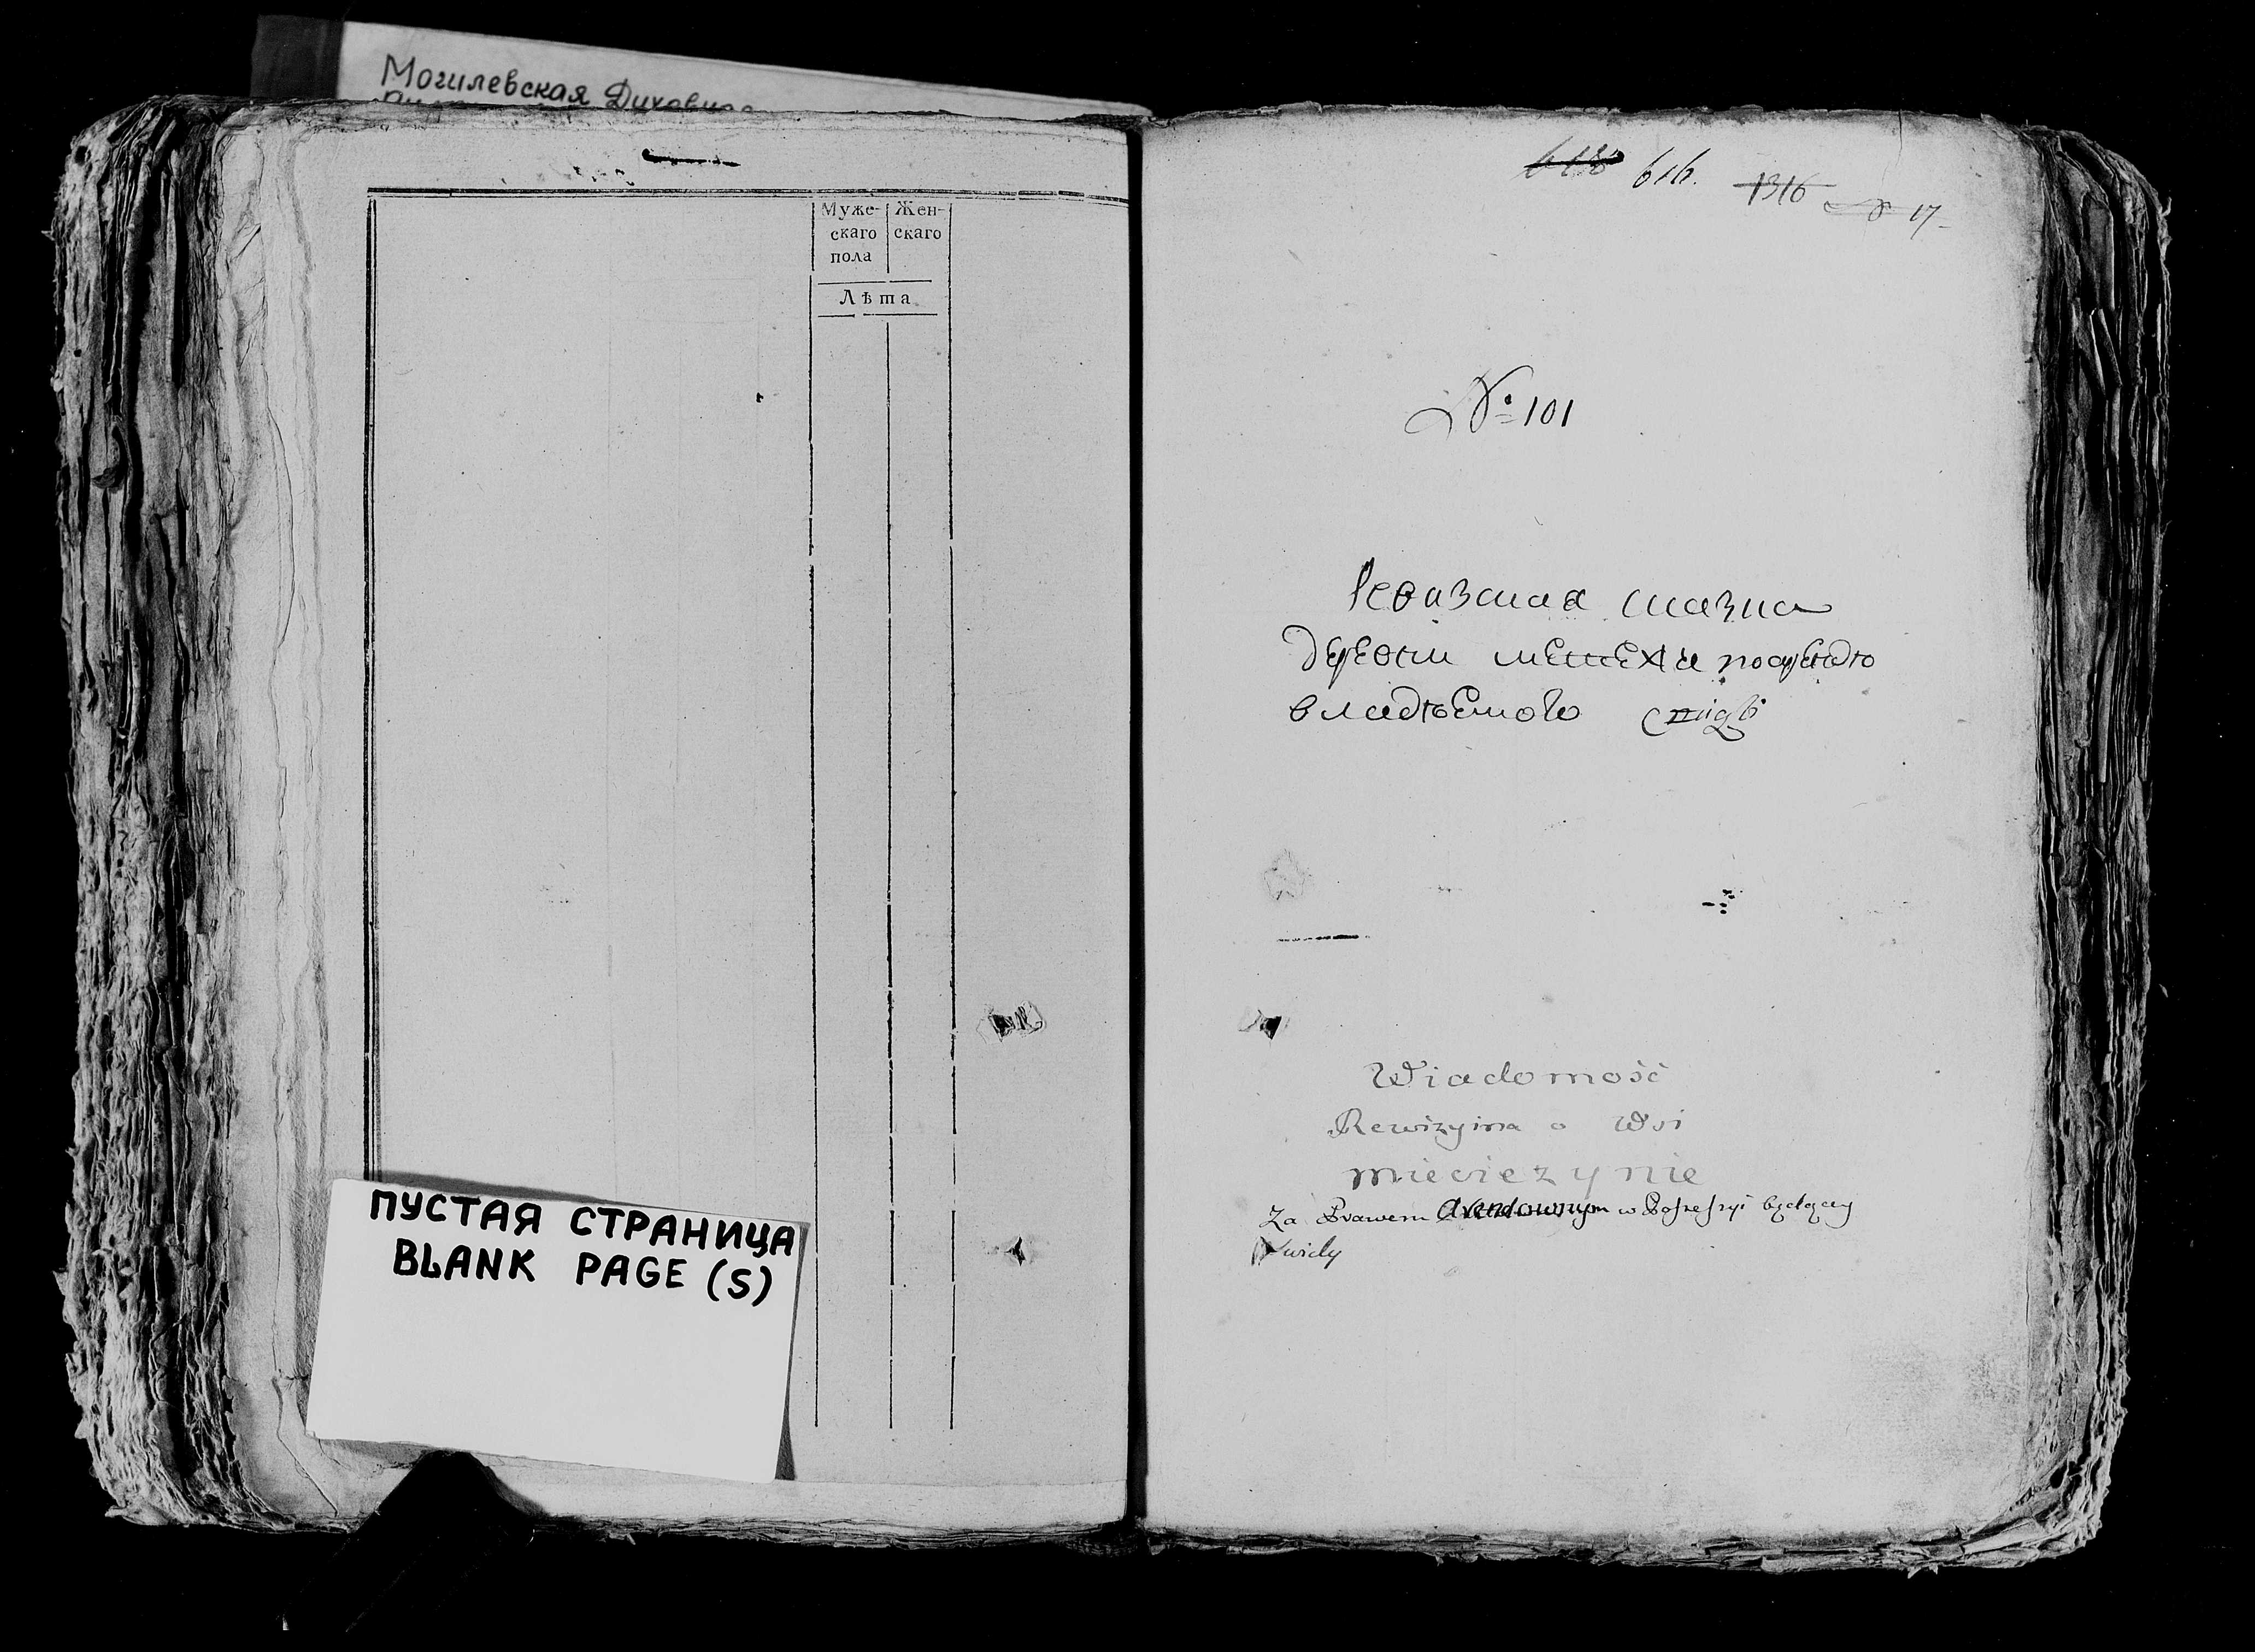 Могилевская Духовная
Муже-
скаго
пола
Жен-
скаго
Лѣта
ПУСТАЯ СТРАНИЦА
BLANK PAGE (S)
616. 1316 № 17
№ 101
Ревизская сказка
деревни
владѣемого
Wiadomość
Rewizyina o Wsi
miecieżynie
Za Prawem Arendownym w Possessyi będącey